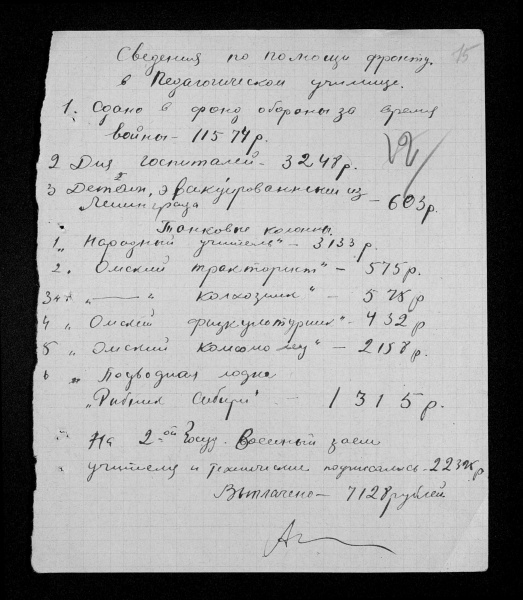 15
Сведения по помощи фронту
в Педагогическом училище.
1. Сдано в фонд обороны за время
войны - 11574р.
2 Для госпиталей - 3248р.
3 Детям, эвакуированным из
Ленинграда - 603р.
Танковые колонны.
1. „Народный учитель" - 3133 р.
2. „Омский тракторист" - 575р.
3 „ —— " колхозник" - 575р
4 „Омский физкультурник" - 432р
5 „Омский комсомолец" - 2158р.
6 „Подводная лодка
„Рабник Сибири" - 1315р.
На 2-ой Госуд. военный заем
учителя и технические подписалось - 22325р
Выплачено - 7128 рублей